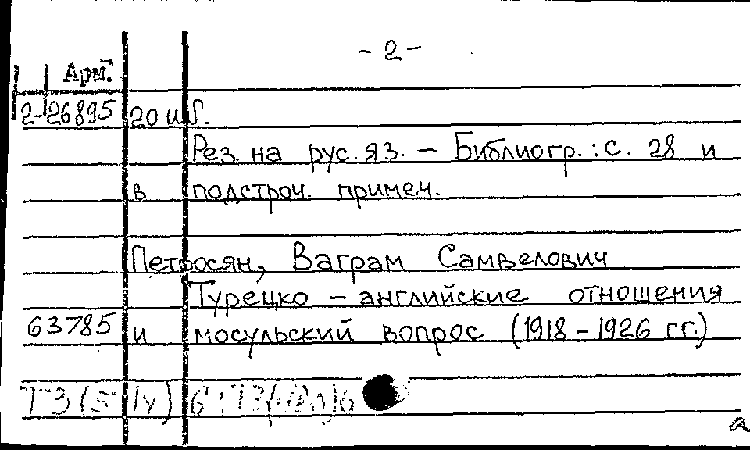 - 2 -
Арм.
2-26895 20 и б.
Рез. на рус. яз. – Библиогр.: с. 28 и
в подстроч. примеч.
Петросян, Ваграм Самвелович
Турецко – английские отношения
63785 и мосульский вопрос (1918 – 1926 гг.)
а